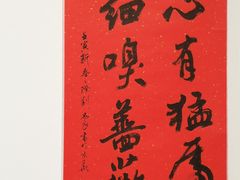 心有猛虎
细嗅蔷薇
壬寅新春